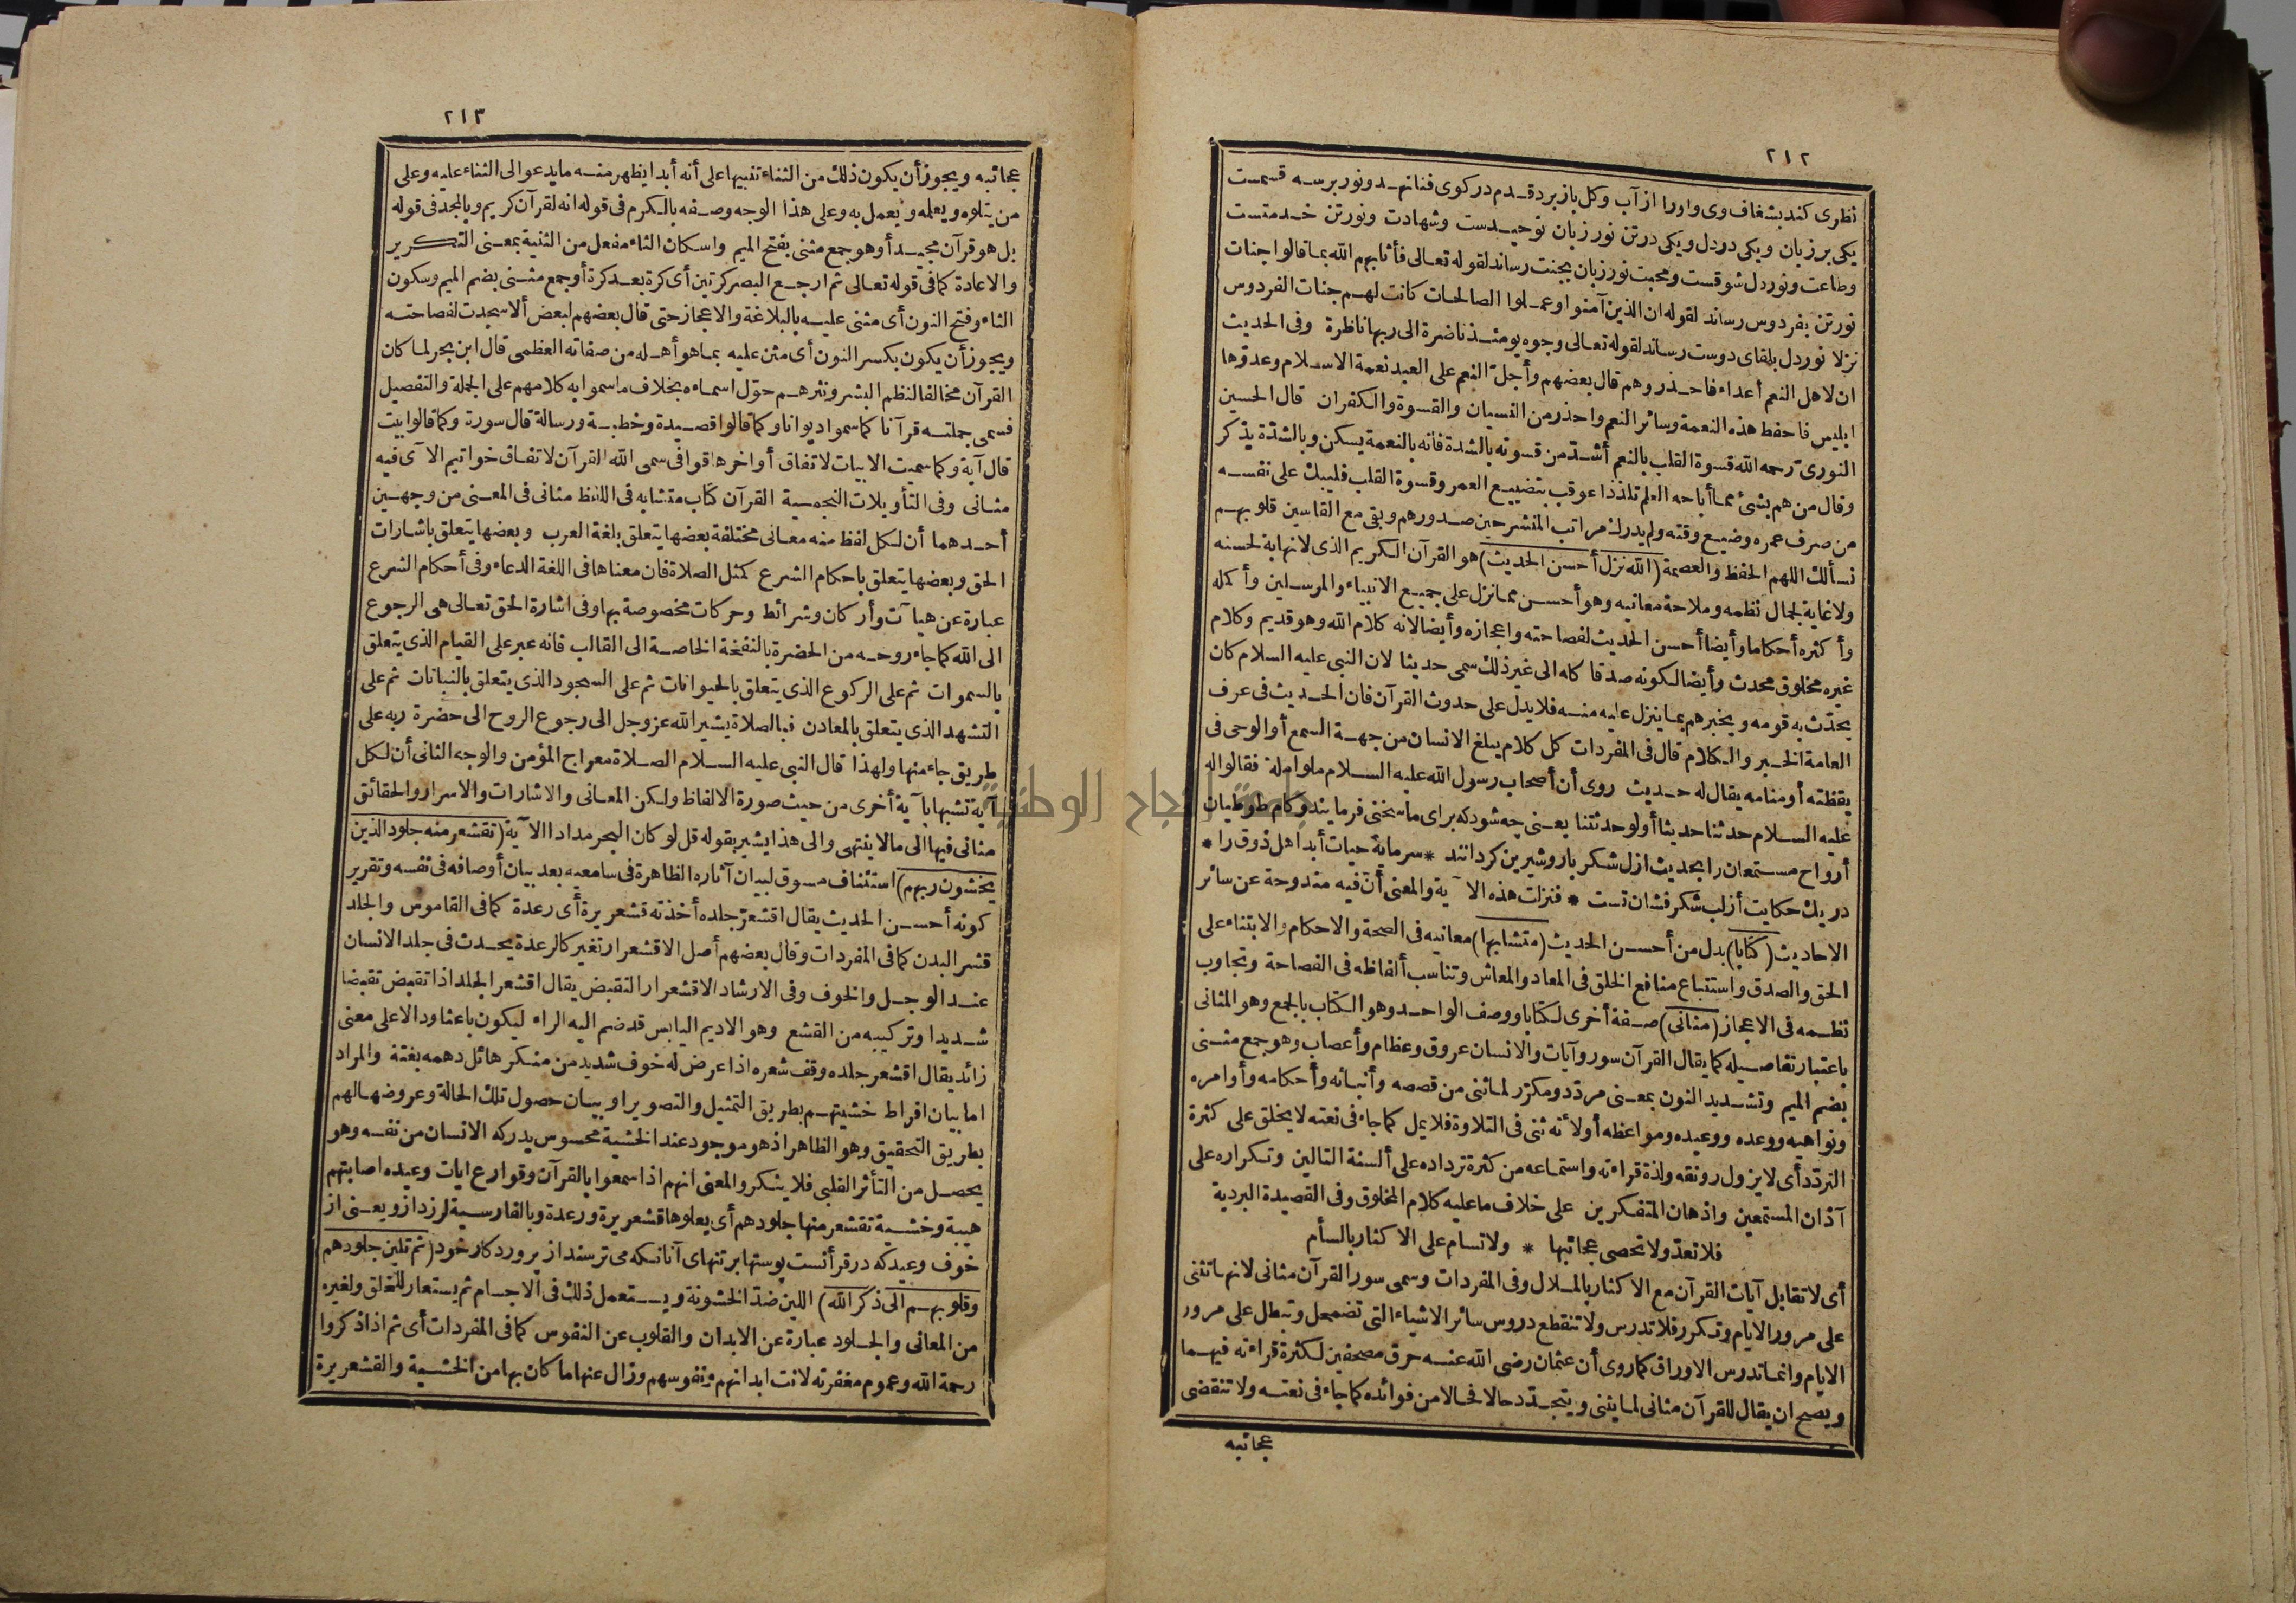 ٢١٢
نظرى كند بشغاف وى واورا از آب وكل باز برد قدم در كوى فنا نهد ونور برسه قسمست
يكى بر زبان ويكى در دل ويكى در تن نور زبان توحيدست وشهادت ونور تن خدمتست
وطاعت ونور دل شوقست ومحبت نور زبان بجنت رساند لقوله تعالى فأثابهم الله بما قالوا جنات
نورتن بفردوس رساند لقوله ان الذين آمنوا وعملوا الصالحات كانت لهم جنات الفردوس
نزلا نور دل بلقاى دوست رساند لقوله تعالى وجوه يومئذ ناضرة الى ربها ناظرة وفى الحديث
ان لاهل النعم أعداء فاحذروهم قال بعضهم وأجلّ النعم على العبد نعمة الاسلام وعدوّها
ابليس فاحفظ هذه النعمة وسائر النعم واحذر من النسيان والقسوة والكفران قال الحسين
النورىّ رحمه الله قسوة القلب بالنعم أشدّ من قسوته بالشدة فانه بالنعمة يسكن وبالشدّة يذكر
وقال من هم بشئ مما أباحه العلم تلذذا عوقب بتضييع العمر وقسوة القلب فليبك على نفسه
من صرف عمره وضيع وقته ولم يدرك مراتب المنشرحين صدورهم وبقى مع القاسين قلوبهم
نسألك اللهم الحفظ والعصمة (الله نزل أحسن الحديث) هو القرآن الكريم الذى لانهاية لحسنه
ولا غاية لجمال نظمه وملاحة معانيه وهو أحسن مما نزل على جميع الانبياء والمرسلين وأكمله
وأكثره أحكاما وأيضا أحسن الحديث لفصاحته واعجازه وأيضا لانه كلام الله وهو قديم وكلام
غيره مخلوق محدث وأيضا لكونه صدقا كله الى غير ذلك سمى حديثا لان النبى عليه السلام كان
يحدّث به قومه ويخبرهم بما ينزل عليه منه فلا يدل على حدوث القرآن فان الحديث فى عرف
العامة الخبر والكلام قال فى المفردات كل كلام يبلغ الانسان من جهة السمع أو الوحى فى
يقظته أو منامه يقال له حديث روى أن أصحاب رسول الله عليه السلام ملوا ملة فقالوا له
عليه السلام حدثنا حديثا أو لو حدثتنا يعنى چه شود كه براى ما سخنى فرمايند وكام طوطيان
أرواح مستمعان را بحديث ازل شكر بار وشيرين كردانند * سرماية حيات أبد اهل ذوق را *
در يك حكايت أزلب شكر فشان تست * فنزلت هذه الآية والمعنى أنّ فيه مندوحة عن سائر
الاحاديث (كتابا) بدل من أحسن الحديث (متشابها) معانيه فى الصحة والاحكام والابتناء على
الحق والصدق واستتباع منافع الخلق فى المعاد والمعاش وتناسب ألفاظه فى الفصاحة وتجاوب
نظمه فى الاعجاز (مثانى) صفة أخرى لكتابا ووصف الواحد وهو الكتاب بالجمع وهو المثانى
باعتبار تفاصيله كما يقال القرآن سور وآيات والانسان عروق وعظام وأعصاب وهو جمع مثنى
بضم الميم وتشديد النون بمعنى مردّد ومكرّر لما ثنى من قصصه وأنبائه وأحكامه وأوامره
ونواهيه ووعده ووعيده ومواعظه أو لانّه ثنى فى التلاوة فلا يمل كما جاء فى نعته لا يخلق على كثرة
التردّد أى لا يزول رونقه ولذة قراءته واستماعه من كثرة ترداده على ألسنة التالين وتكراره على
آذان المستمعين واذهان المتفكرين على خلاف ما عليه كلام المخلوق وفى القصيدة البردية
فلا تعدّ ولا تحصى عجائبها * ولا تسام على الاكثار بالسأم
أى لا تقابل آيات القرآن مع الاكثار بالملال وفى المفردات وسمى سور القرآن مثانى لانها تثنى
على مرور الايام وتكرر فلا تدرس ولا تنقطع دروس سائر الاشياء التى تضمحل وتبطل على مرور
الايام وانما تدرس الاوراق كما روى أن عثمان رضى الله عنه حرق مصحفين لكثرة قراءته فيهما
ويصح ان يقال للقرآن مثانى لما يثنى ويتجدّد حالا فحالا من فوائده كما جاء فى نعته ولا تنقضى
عجائبه
٢١٣
عجائبه ويجوز أن يكون ذلك من الثناء تنبيها على أنه أبدا يظهر منه ما يدعو الى الثناء عليه وعلى
من يتلوه ويعلمه ويعمل به وعلى هذا الوجه وصفه بالكرم فى قوله انه لقرآن كريم وبالمجد فى قوله
بل هو قرآن مجيد أو هو جمع مثنى بفتح الميم واسكان الثاء مفعل من الثنية بمعنى التكرير
والاعادة كما فى قوله تعالى ثم ارجع البصر كرتين أى كرة بعد كرة أو جمع مثنى بضم الميم وسكون
الثاء وفتح النون أى مثنى عليه بالبلاغة والاعجاز حتى قال بعضهم لبعض ألا سجدت لفصاحته
ويجوز أن يكون بكسر النون أى مثن عليه بما هو أهله من صفاته العظمى قال ابن بحر لما كان
القرآن مخالفا لنظم البشر ونثرهم حوّل اسماءه بخلاف ما سموا به كلامهم على الجملة والتفصيل
فسمى جملته قرآنا كما سموا ديوانا وكما قالوا قصيدة وخطبة ورسالة قال سورة وكما قالوا بيت
قال آية وكما سميت الابيات لاتفاق أواخرها قوافى سمى الله القرآن لاتفاق خواتيم الآى فيه
مثانى وفى التأويلات النجمية القرآن كتاب متشابه فى اللفظ مثانى فى المعنى من وجهين
أحدهما أن لكل لفظ منه معانى مختلفة بعضها يتعلق بلغة العرب وبعضها يتعلق باشارات
الحق وبعضها يتعلق باحكام الشرع كمثل الصلاة فان معناها فى اللغة الدعاء وفى أحكام الشرع
عبارة عن هيآت وأركان وشرائط وحركات مخصوصة بها وفى اشارة الحق تعالى هى الرجوع
الى الله كما جاء روحه من الحضرة بالنفخة الخاصة الى القالب فانه عبر على القيام الذى يتعلق
بالسموات ثم على الركوع الذى يتعلق بالحيوانات ثم على السجود الذى يتعلق بالنباتات ثم على
التشهد الذى يتعلق بالمعادن فبالصلاة يشير الله عز وجل الى رجوع الروح الى حضرة ربه على
طريق جاء منها ولهذا قال النبى عليه السلام الصلاة معراج المؤمن والوجه الثانى أن لكل
آية تشبها بآية أخرى من حيث صورة الالفاظ ولكن المعانى والاشارات والاسرار والحقائق
مثانى فيها الى ما لا ينتهى والى هذا يشير بقوله قل لو كان البحر مدادا الآية (تقشعر منه جلود الذين
يخشون ربهم) استئناف مسوق لبيان آثاره الظاهرة فى سامعيه بعد بيان أوصافه فى نفسه وتقرير
كونه أحسن الحديث يقال اقشعرّ جلده أخذته قشعريرة أى رعدة كما فى القاموس والجلد
قشر البدن كما فى المفردات وقال بعضهم أصل الاقشعرار تغير كالرعدة يحدث فى جلد الانسان
عند الوجل والخوف وفى الارشاد الاقشعرار التقبض يقال اقشعر الجلد اذا تقبض تقبضا
شديدا وتركيبه من القشع وهو الاديم اليابس قد ضم اليه الراء ليكون باعثا ودالا على معنى
زائد يقال اقشعر جلده وقف شعره اذا عرض له خوف شديد من منكر هائل دهمه بغتة والمراد
اما بيان افراط خشيتهم بطريق التمثيل والتصوير او بيان حصول تلك الحالة وعروضها لهم
بطريق التحقيق وهو الظاهر اذ هو موجود عند الخشية محسوس يدركه الانسان من نفسه وهو
يحصل من التأثر القلبى فلا ينكر والمعنى انهم اذا سمعوا بالقرآن وقوارع ايات وعيده اصابتهم
هيبة وخشية تقشعر منها جلودهم أى يعلوها قشعريرة ورعدة وبالفارسية لرزد از و يعنى از
خوف وعيد كه در قرأنست پوستها بر تنهاى آنانكه مى ترسند از پروردكار خود (ثم تلين جلودهم
وقلوبهم الى ذكر الله) اللين ضدّ الخشونة ويستعمل ذلك فى الاجسام ثم يستعار للتخلق ولغيره
من المعانى والجلود عبارة عن الابدان والقلوب عن النفوس كما فى المفردات أى ثم اذا ذكروا
رحمة الله وعموم مغفرته لانت ابدانهم ونفوسهم وزال عنها ما كان بها من الخشية والقشعريرة